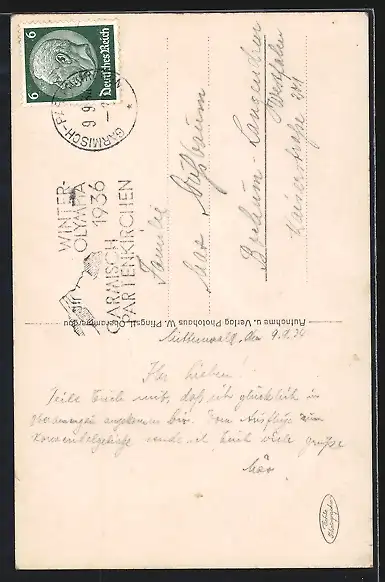 6 Deutsches Reich 6
GARMISCH-PA
9.9.
WINTER-
OLYMPIA
1936
GARMISCH
PARTENKIRCHEN
Familie
Max Nußbaum
Bochum-Langendreer
Westfalen
Kaiserstraße 241
Aufnahme u. Verlag Photohaus W. Pfingstl, Oberammergau
Mittenwald, den 9.9.34
Ihr Lieben!
Teile Euch mit, daß ich glücklich in
angekommen bin. Vom Ausfluge zum
Karwendelgebirge sende ich Euch viele Grüße
Max
Echte
Photographie